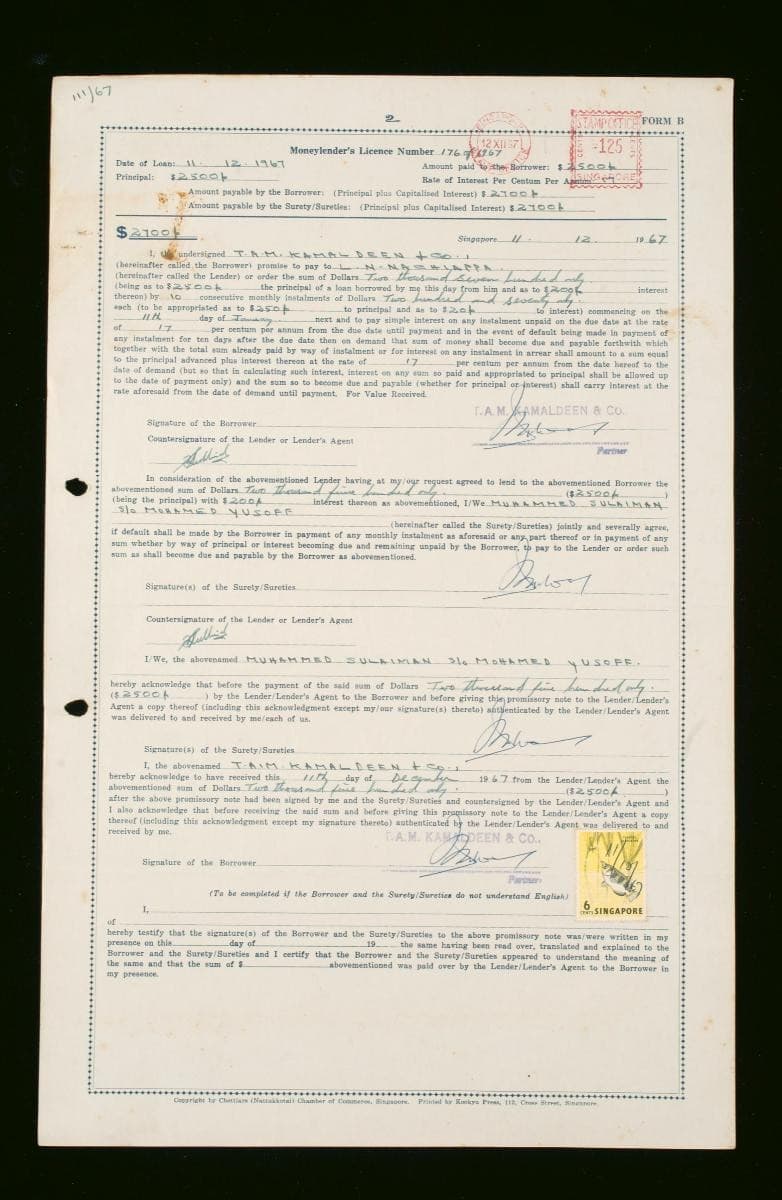 111/67
2
FORM B
SINGAPORE
12 XII 67
STAMP OFFICE
CENTS
125
SINGAPORE
Moneylender's Licence Number 176 /1967
Date of Loan: 11. 12. 1967
Amount paid to the Borrower: $ 2500/-
Principal: $2500/-
Rate of Interest Per Centum Per Annum 17
Amount payable by the Borrower: (Principal plus Capitalised Interest) $ 2700/-
Amount payable by the Surety/Sureties: (Principal plus Capitalised Interest) $ 2700/-
$ 2700/-
Singapore 11. 12. 1967
I, the undersigned T.A.M. KAMALDEEN & CO.,
(hereinafter called the Borrower) promise to pay to L. N. NACHIAPPA
(hereinafter called the Lender) or order the sum of Dollars Two thousand seven hundred only
(being as to $2500/- the principal of a loan borrowed by me this day from him and as to $200/- interest
thereon) by 10 consecutive monthly instalments of Dollars Two hundred and seventy only.
each (to be appropriated as to $250/- to principal and as to $20/- to interest) commencing on the
11th day of January next and to pay simple interest on any instalment unpaid on the due date at the rate
of 17 per centum per annum from the due date until payment and in the event of default being made in payment of
any instalment for ten days after the due date then on demand that sum of money shall become due and payable forthwith which
together with the total sum already paid by way of instalment or for interest on any instalment in arrear shall amount to a sum equal
to the principal advanced plus interest thereon at the rate of 17 per centum per annum from the date hereof to the
date of demand (but so that in calculating such interest, interest on any sum so paid and appropriated to principal shall be allowed up
to the date of payment only) and the sum so to become due and payable (whether for principal or interest) shall carry interest at the
rate aforesaid from the date of demand until payment. For Value Received.
T.A.M. KAMALDEEN & CO.
Signature of the Borrower
Countersignature of the Lender or Lender's Agent
Partner
In consideration of the abovementioned Lender having at my/our request agreed to lend to the abovementioned Borrower the
abovementioned sum of Dollars Two thousand five hundred only. ($2500/- )
(being the principal) with $ 200/- interest thereon as abovementioned, I/We MUHAMMED SULAIMAN
S/o MOHAMED YUSOFF
(hereinafter called the Surety/Sureties) jointly and severally agree,
if default shall be made by the Borrower in payment of any monthly instalment as aforesaid or any part thereof or in payment of any
sum whether by way of principal or interest becoming due and remaining unpaid by the Borrower, to pay to the Lender or order such
sum as shall become due and payable by the Borrower as abovementioned.
Signature(s) of the Surety/Sureties
Countersignature of the Lender or Lender's Agent
I/We, the abovenamed MUHAMMED SULAIMAN S/o MOHAMED YUSOFF.
hereby acknowledge that before the payment of the said sum of Dollars Two thousand five hundred only.
($2500/- ) by the Lender/Lender's Agent to the Borrower and before giving this promissory note to the Lender/Lender's
Agent a copy thereof (including this acknowledgment except my/our signature(s) thereto) authenticated by the Lender/Lender's Agent
was delivered to and received by me/each of us.
Signature(s) of the Surety/Sureties
I, the abovenamed T.A.M. KAMALDEEN & CO.,
hereby acknowledge to have received this 11th day of December 1967 from the Lender/Lender's Agent the
abovementioned sum of Dollars Two thousand five hundred only. ($2500/- )
after the above promissory note had been signed by me and the Surety/Sureties and countersigned by the Lender/Lender's Agent and
I also acknowledge that before receiving the said sum and before giving this promissory note to the Lender/Lender's Agent a copy
thereof (including this acknowledgment except my signature thereto) authenticated by the Lender/Lender's Agent was delivered to and
received by me.
T.A.M. KAMALDEEN & CO.,
Signature of the Borrower
Partner
(To be completed if the Borrower and the Surety/Sureties do not understand English)
6 CENTS SINGAPORE
I,
of
hereby testify that the signature(s) of the Borrower and the Surety/Sureties to the above promissory note was/were written in my
presence on this day of 19 the same having been read over, translated and explained to the
Borrower and the Surety/Sureties and I certify that the Borrower and the Surety/Sureties appeared to understand the meaning of
the same and that the sum of $ abovementioned was paid over by the Lender/Lender's Agent to the Borrower in
my presence.
Copyright by Chettiars (Nattukkottai) Chamber of Commerce, Singapore. Printed by Konkyu Press, 112, Cross Street, Singapore.